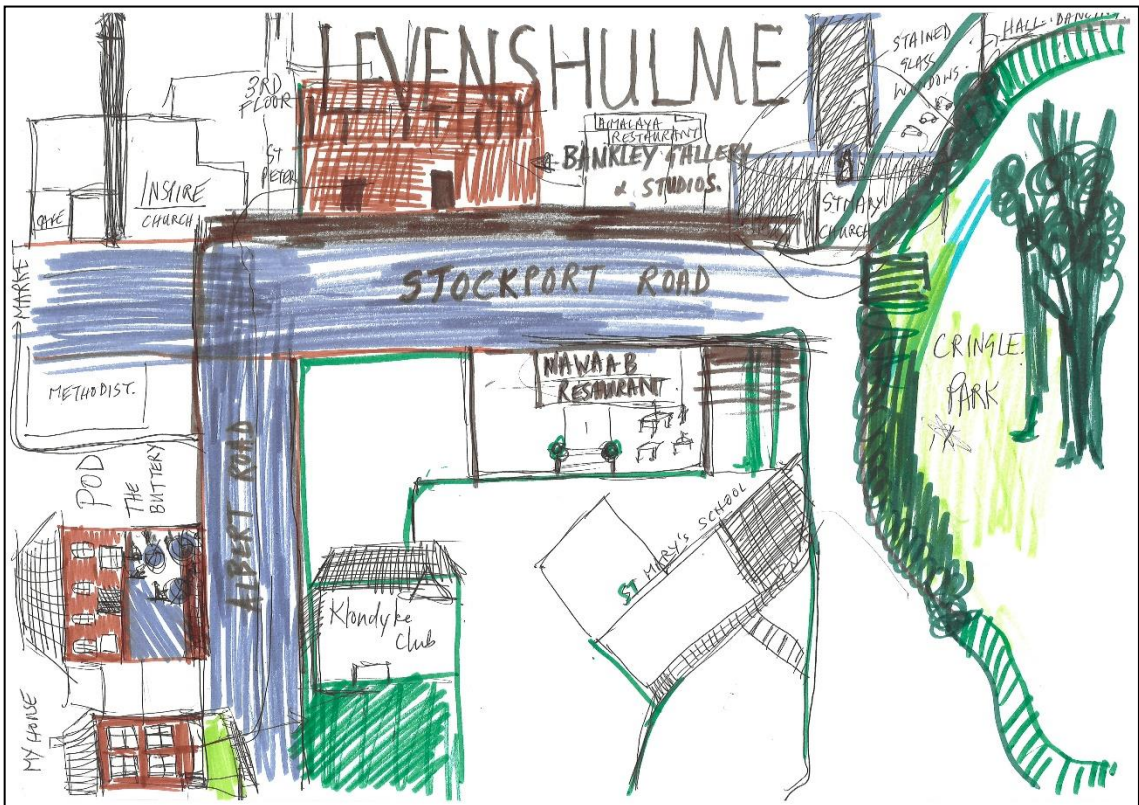 LEVENSHULME
3RD
FLOOR
ST
PETER
INSPIRE
CHURCH
CAFE
HIMALAYA
RESTAURANT
BANKLEY GALLERY
& STUDIOS.
STAINED
GLASS
WINDOWS.
HALL. DANCING
ST MARY
CHURCH
MARKET
STOCKPORT ROAD
METHODIST.
NAWAAB
RESAURANT
CRINGLE.
PARK
POD
THE
BUTTERY
ALBERT ROAD
Klondyke
Club
ST MARY'S SCHOOL
MY HOUSE